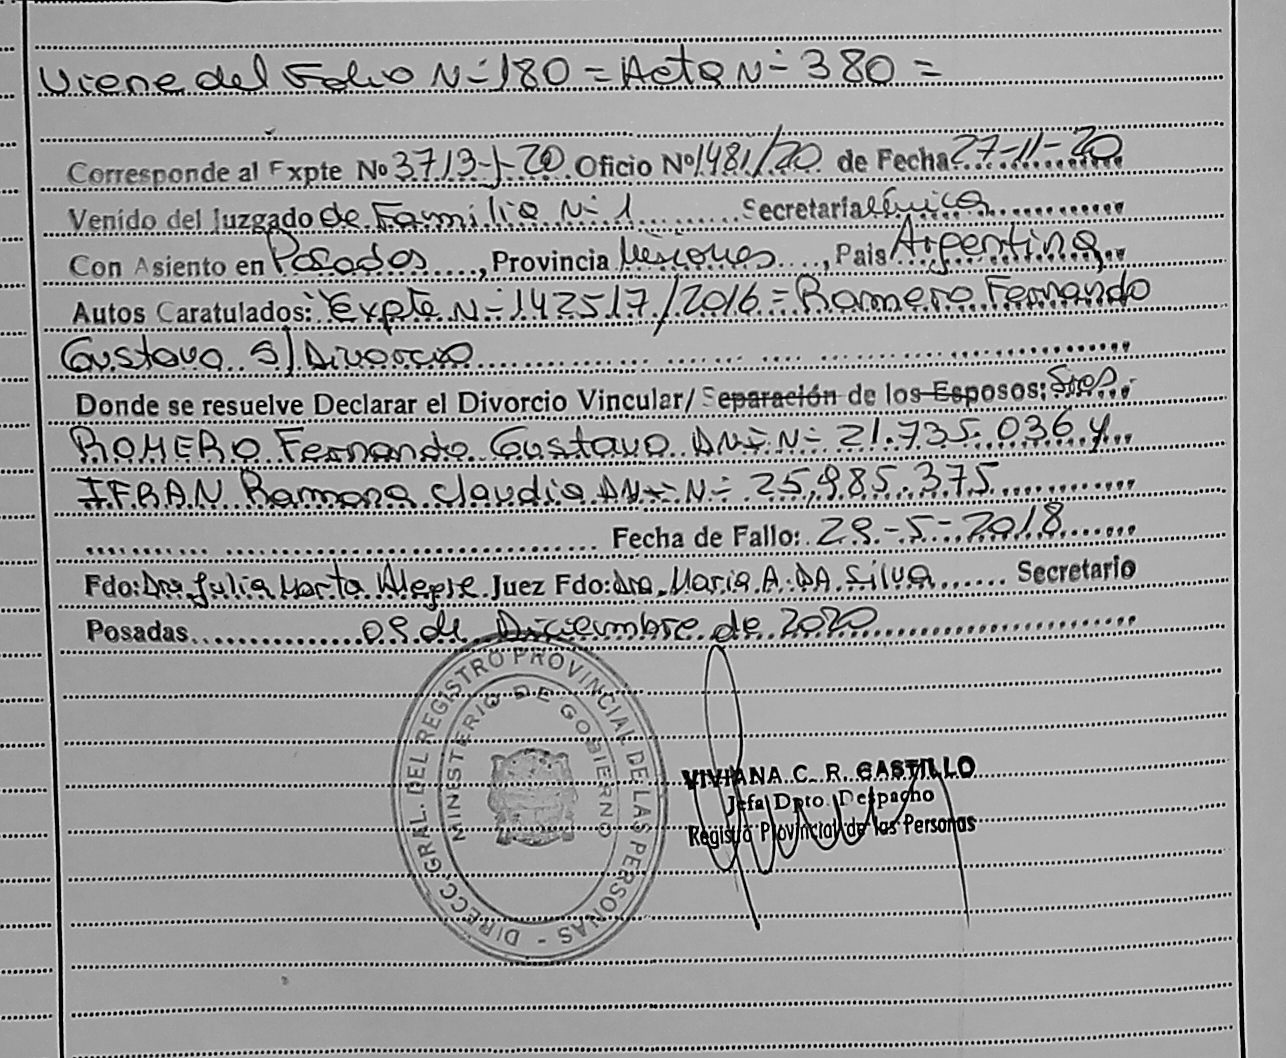 Viene del Folio N= 180 = Acta N= 380 =
Corresponde al Expte No 3713-J-20 Oficio Nº 1481/20 de Fecha 27-11-20
Venido del Juzgado de Familia N= 1 Secretaria Única
Con Asiento en Posadas, Provincia Misiones, Pais Argentina
Autos Caratulados: "Expte N= 142517/2016 = Romero Fernando
Gustavo S/ Divorcio
Donde se resuelve Declarar el Divorcio Vincular/ Separación de los Esposos: Sres.
ROMERO Fernando Gustavo DNI N= 21.735.036 y
IFRAN Ramona Claudia DNI N= 25.985.375
Fecha de Fallo: 29-5-2018
Fdo: Dra. Julia Marta Alegre Juez Fdo: Dra. Maria A. DA Silva Secretario
Posadas 09 de Diciembre de 2020
DIRECC. GRAL. DEL REGISTRO PROVINCIAL DE LAS PERSONAS -
MINISTERIO DE GOBIERNO
VIVIANA C. R. CASTILLO
Jefa Dpto. Despacho
Registro Provincial de las Personas